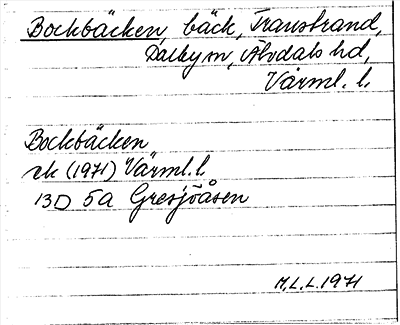 Bockbäcken, bäck, Transtrand,
Dalby sn, Älvdals hd,
Värml. l.
Bockbäcken
ek (1971) Värml. l.
13D 5a Gresjöåsen
M.L.L. 1971